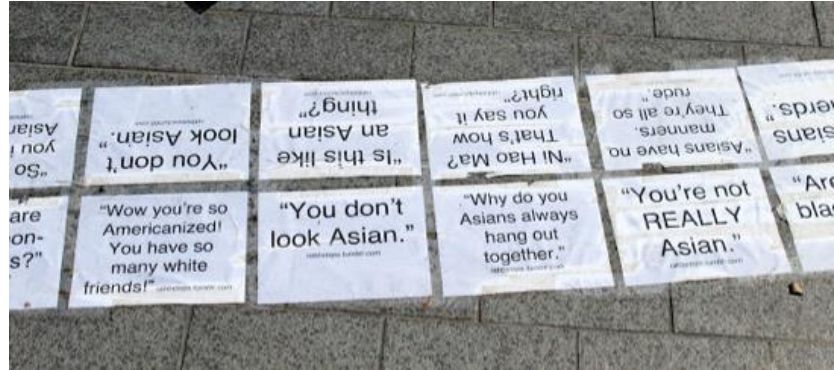 “So
you
“You don't
look Asian.”
“Is this like
an Asian
thing?”
“Ni Hao Ma?
That's how
you say it
right?”
“Asians have no
manners.
They're all so
rude.”
sians
nerds.”
are
on-
s?”
“Wow you're so
Americanized!
You have so
many white
friends!”
“You don't
look Asian.”
“Why do you
Asians always
hang out
together.”
“You're not
REALLY
Asian.”
“Are
blas